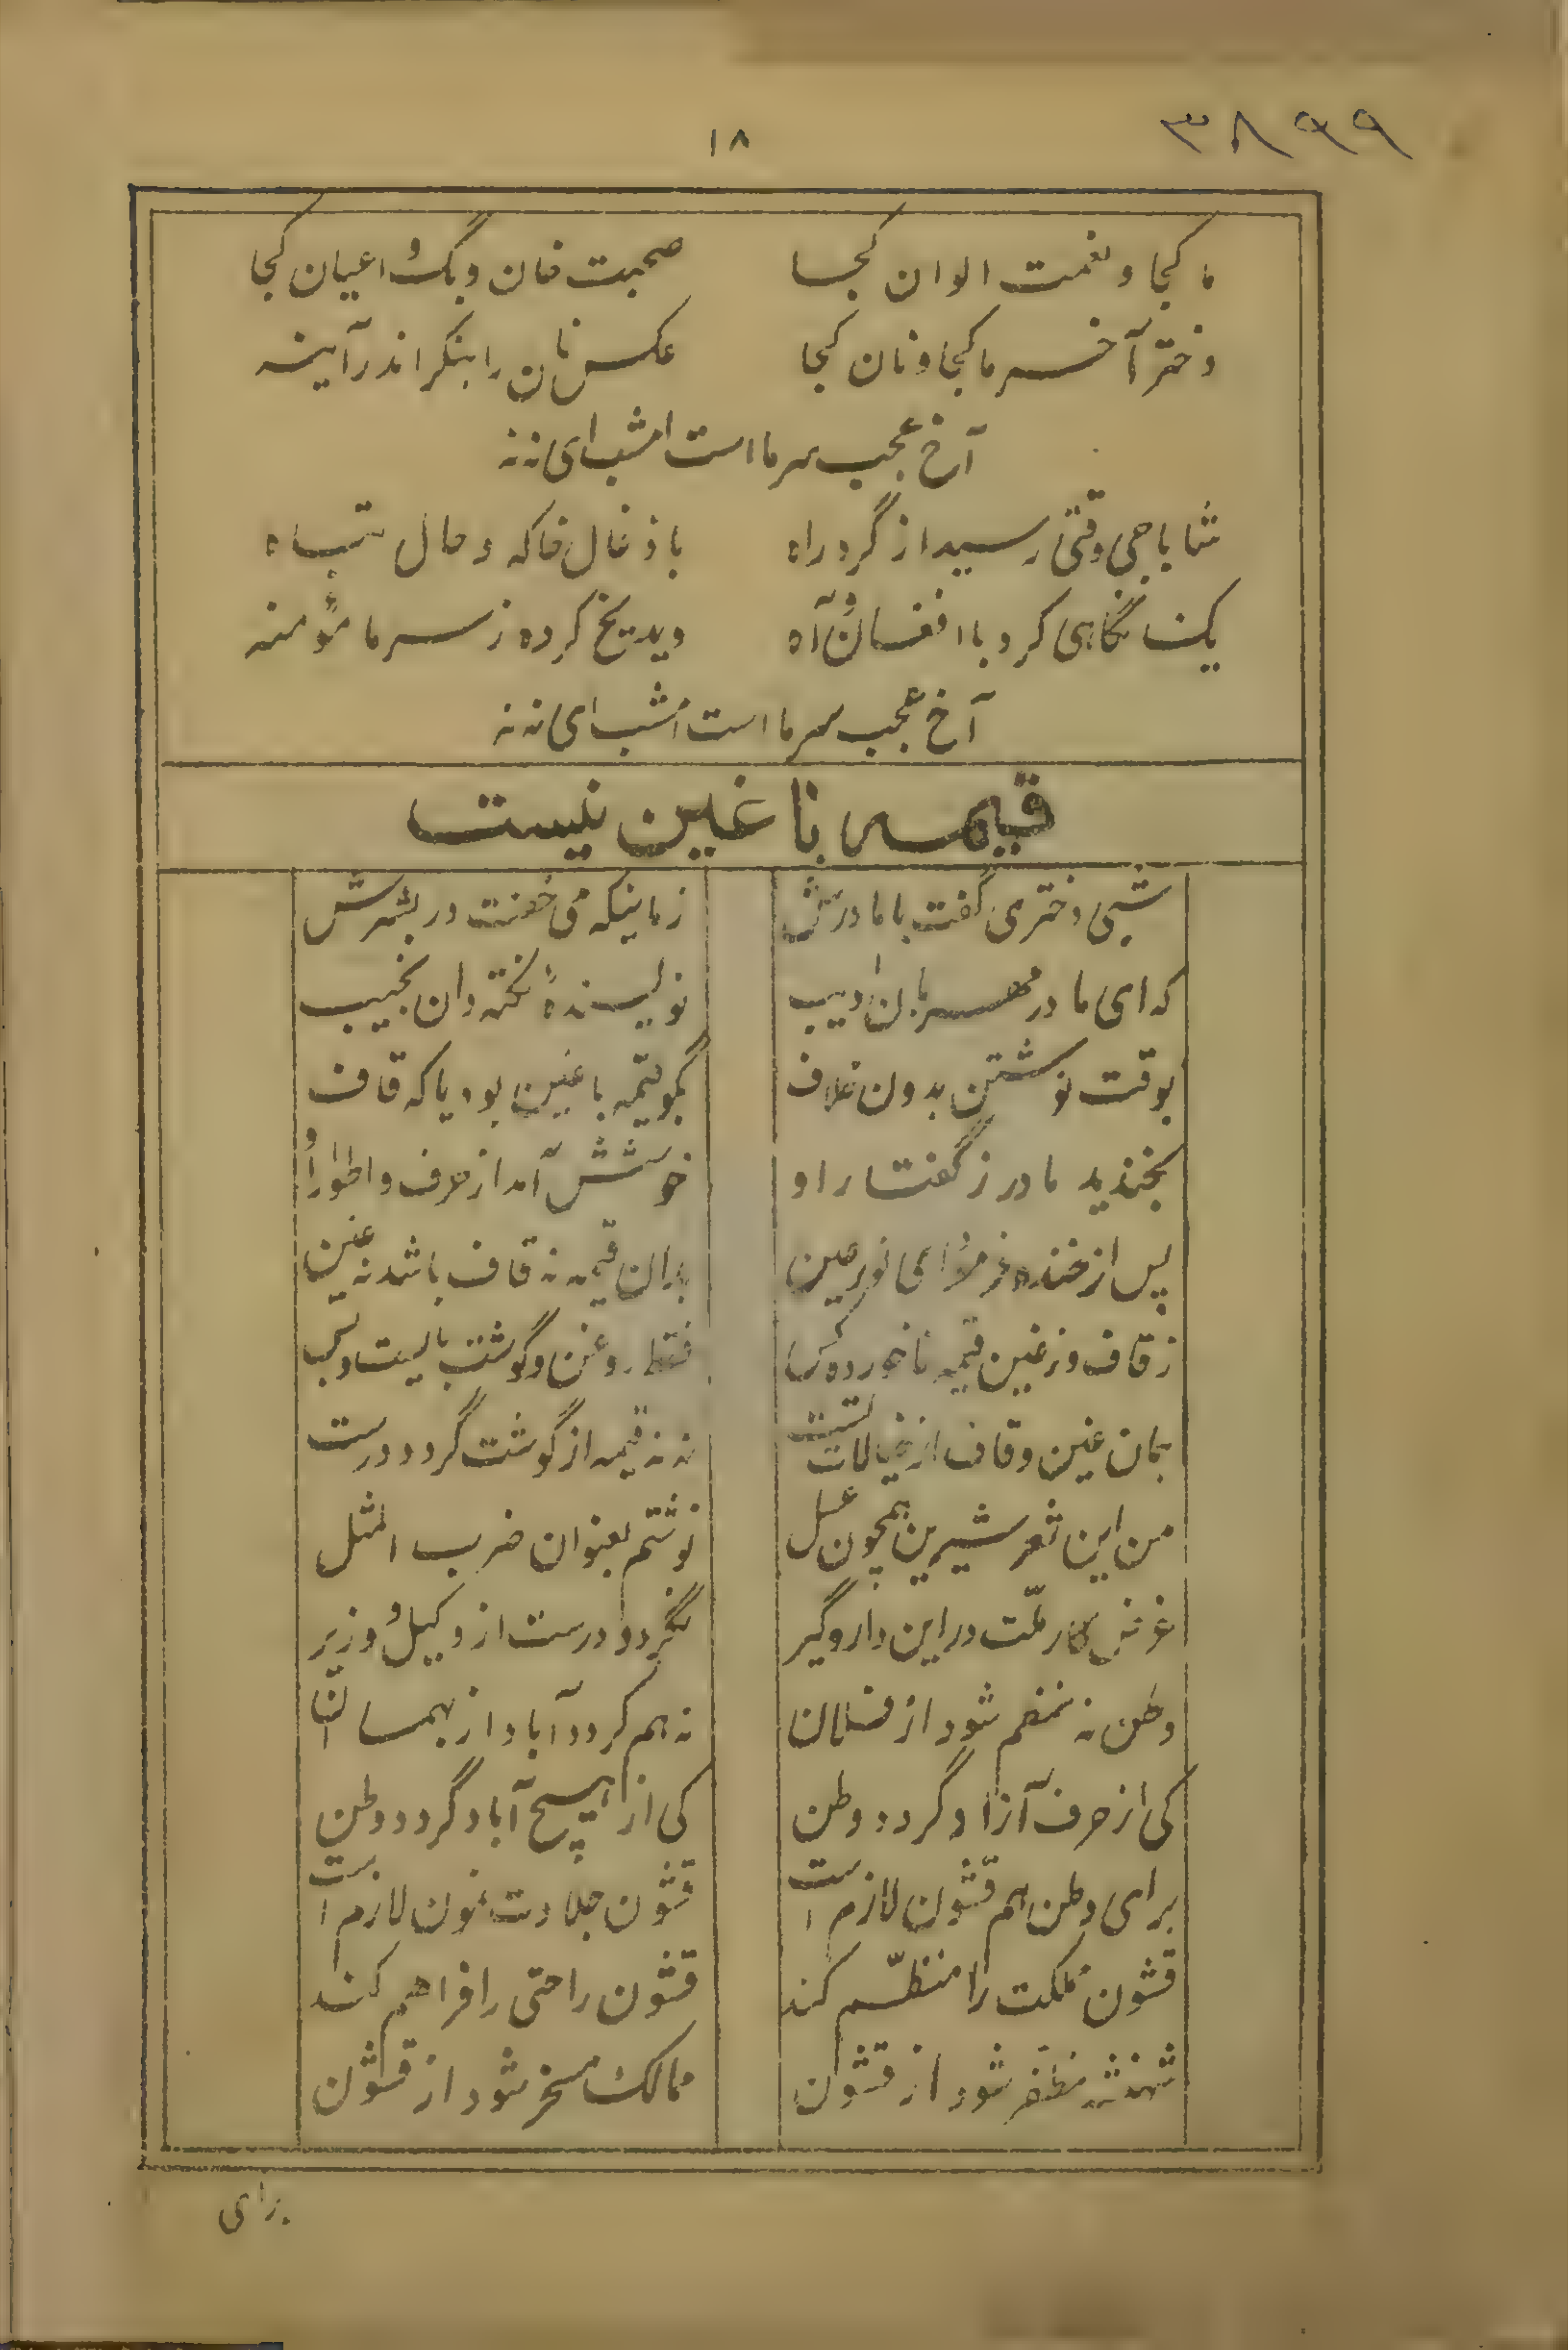 ۳۸۹۹
۱۸
ما کجا و نعمت الوان کجا صحبت خان و بگ و اعیان کجا
دختر آخر ما کجا و نان کجا عکس نان را بنگر اندر آینه
آخ عجب سرما است امشب ای ننه
شاباجی وقتی رسید از گرد راه با ذغال خاکه و حال تباه
یک نگاهی کرد با افغان و آه دید یخ کرده ز سرما مؤمنه
آخ عجب سرما است امشب ای ننه
قیمه با غین نیست
شبی دختری گفت با مادرش زمانیکه می خفت در بسترش
که ای مادر مهربان ادیب نویسندهٔ نکته دان نجیب
بوقت نوشتن بدون خلاف بگو قیمه با غین بود یا که قاف
بخندید مادر ز گفتار او خوشش آمد از حرف و اطوار او
پس از خنده فرمود ای نور عین بدان قیمه نه قاف باشد نه غین
ز قاف و ز غین قیمه ناخورده کس فقط روغن و گوشت بایست و بس
بمان غین و قاف از خیالات سست نه نه قیمه از گوشت گردد درست
من این شعر شیرین همچون عسل نوشتم بعنوان ضرب المثل
غرض کار ملّت در این دار و گیر نگردد درست از وکیل و وزیر
وطن نه منظم شود از فلان نه هم گردد آباد از بهمسان
کی از حرف آزاد گردد وطن کی از هیچ آباد گردد وطن
برای وطن هم قشون لازم است قشون جلادت نمون لازم است
قشون مملکت را منظّم کند قشون راحتی را فراهم کند
شهنشه مظفر شود از قشون ممالک مسخر شود از قشون
برای